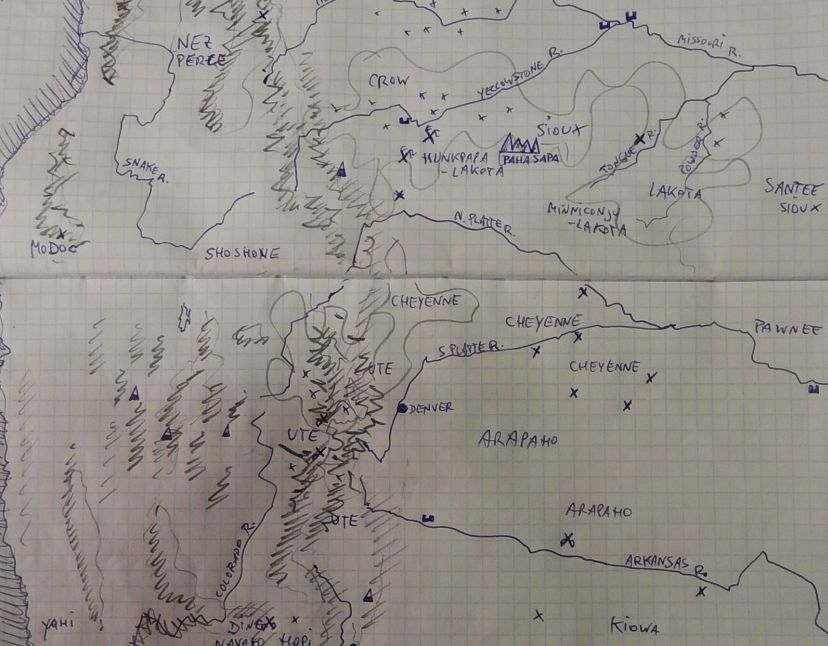 NEZ
PERCE
MISSOURI R.
CROW
YELLOWSTONE R.
SIOUX
SNAKE R.
HUNKPAPA
-LAKOTA
PAHA SAPA
TONGUE R.
POWDER R.
LAKOTA
SANTEE
SIOUX
MINNICONJU
-LAKOTA
N. PLATTE R.
MODOC
SHOSHONE
CHEYENNE
CHEYENNE
PAWNEE
S. PLATTE R.
UTE
CHEYENNE
DENVER
UTE
ARAPAHO
ARAPAHO
UTE
COLORADO R.
ARKANSAS R.
YAHI
DINE
NAVAHO
HOPI
KIOWA